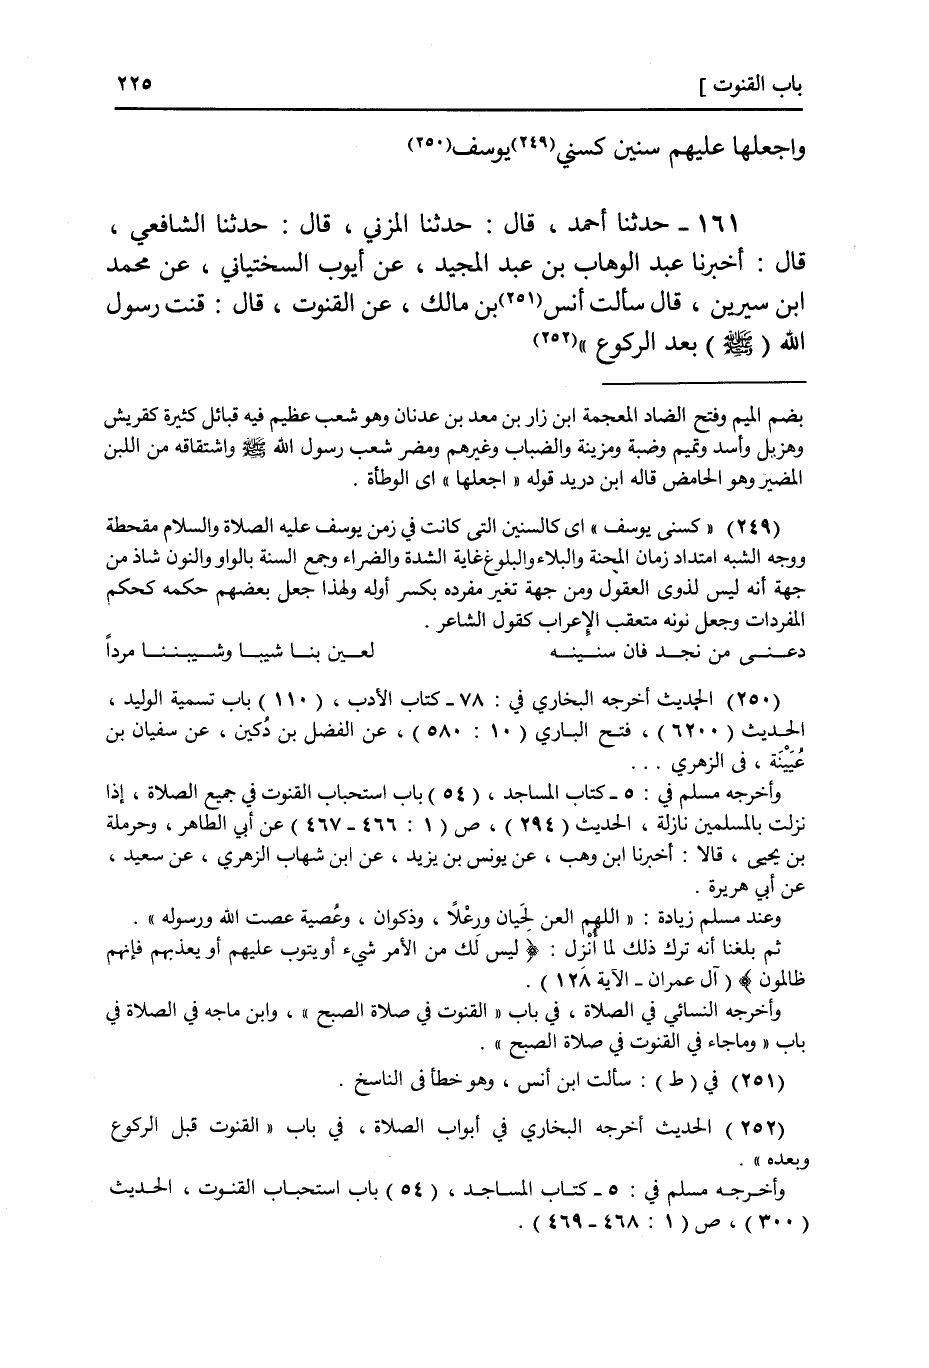 باب القنوت ] ٢٢٥
واجعلها عليهم سنين كسني(٢٤٩)يوسف(٢٥٠)
١٦١ ـ حدثنا أحمد ، قال : حدثنا المزني ، قال : حدثنا الشافعي ،
قال : أخبرنا عبد الوهاب بن عبد المجيد ، عن أيوب السختياني ، عن محمد
ابن سيرين ، قال سألت أنس(٢٥١)بن مالك ، عن القنوت ، قال : قنت رسول
الله ( ﷺ ) بعد الركوع »(٢٥٢)
بضم الميم وفتح الضاد المعجمة ابن زار بن معد بن عدنان وهو شعب عظيم فيه قبائل كثيرة كقريش
وهزيل وأسد وتميم وضبة ومزينة والضباب وغيرهم ومضر شعب رسول الله ﷺ واشتقاقه من اللبن
المضير وهو الحامض قاله ابن دريد قوله « اجعلها » اى الوطأة .
(٢٤٩) « كسنى يوسف » اى كالسنين التى كانت في زمن يوسف عليه الصلاة والسلام مقحطة
ووجه الشبه امتداد زمان المحنة والبلاء والبلوغ غاية الشدة والضراء وجمع السنة بالواو والنون شاذ من
جهة أنه ليس لذوى العقول ومن جهة تغير مفرده بكسر أوله ولهذا جعل بعضهم حكمه كحكم
المفردات وجعل نونه متعقب الإعراب كقول الشاعر .
دعنـى من نجد فان سنينه لعبن بنا شيبا وشيبننا مرداً
(٢٥٠) الحديث أخرجه البخاري في : ٧٨ ـ كتاب الأدب ، ( ١١٠ ) باب تسمية الوليد ،
الحديث ( ٦٢٠٠ ) ، فتح الباري ( ١٠ : ٥٨٠ ) ، عن الفضل بن دُكين ، عن سفيان بن
عُيَيْنَة ، فى الزهري . . .
وأخرجه مسلم في : ٥ ـ كتاب المساجد ، ( ٥٤ ) باب استحباب القنوت في جميع الصلاة ، إذا
نزلت بالمسلمين نازلة ، الحديث ( ٢٩٤ ) ، ص ( ١ : ٤٦٦ ـ ٤٦٧ ) عن أبي الطاهر ، وحرملة
بن يحيى ، قالا : أخبرنا ابن وهب ، عن يونس بن يزيد ، عن ابن شهاب الزهري ، عن سعيد ،
عن أبي هريرة .
وعند مسلم زيادة : « اللهم العن لَحيان ورعْلاً ، وذكوان ، وعُصية عصت الله ورسوله » .
ثم بلغنا أنه ترك ذلك لما أُنْزل : ﴿ ليس لَك من الأمر شيء أو يتوب عليهم أو يعذبهم فإنهم
ظالمون ﴾ ( آل عمران ـ الآية ١٢٨ ) .
وأخرجه النسائي في الصلاة ، في باب « القنوت في صلاة الصبح » ، وابن ماجه في الصلاة في
باب « وماجاء في القنوت في صلاة الصبح » .
(٢٥١) في ( ط ) : سألت ابن أنس ، وهو خطأ فى الناسخ .
(٢٥٢ ) الحديث أخرجه البخاري في أبواب الصلاة ، في باب « القنوت قبل الركوع
وبعده » .
وأخرجه مسلم في : ٥ ـ كتاب المساجد ، ( ٥٤ ) باب استحباب القنوت ، الحديث
( ٣٠٠ ) ، ص ( ١ : ٤٦٨ ـ ٤٦٩ ) .